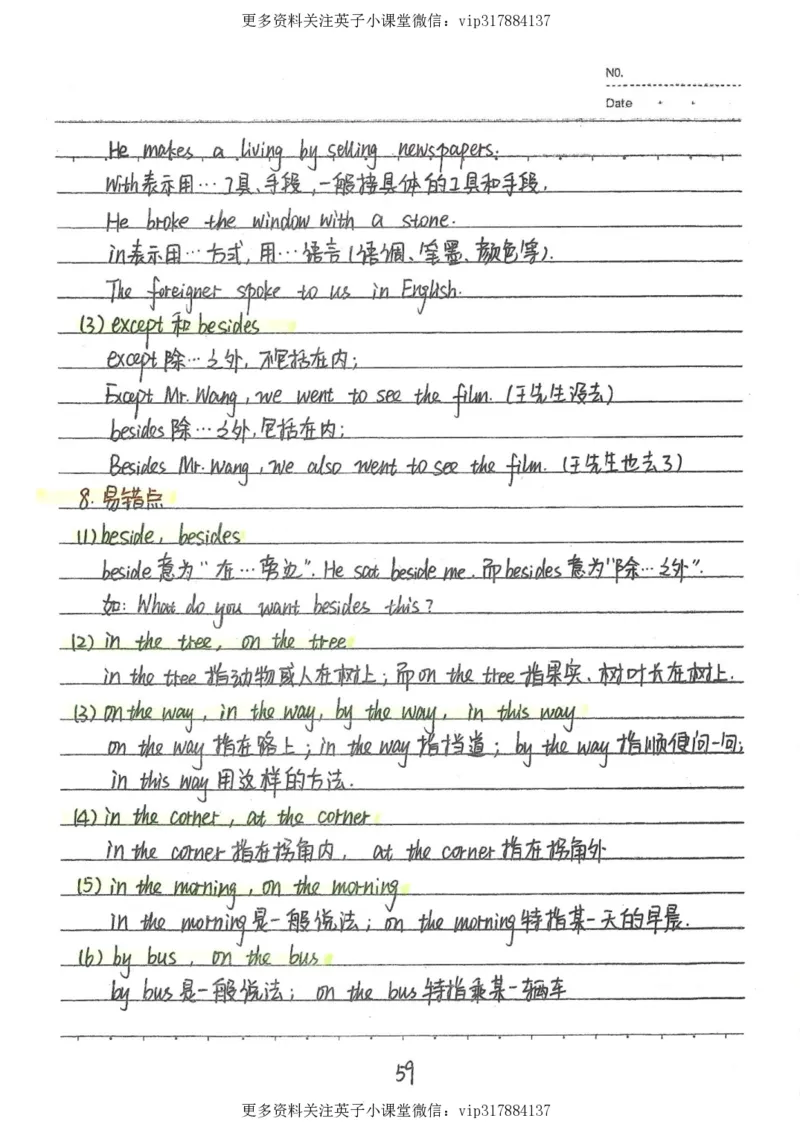 更多资料关注英子小课堂微信：vip317884137
NO.
Date
He makes a living by selling newspapers.
With表示用…工具、手段,一般接具体的工具和手段.
He broke the window with a stone.
in表示用…方式,用…语言(语调、笔墨、颜色等).
The foreigner spoke to us in English.
(3) except 和 besides
except 除…之外,不包括在内;
Except Mr. Wang, we went to see the film. (王先生没去)
besides 除…之外,包括在内;
Besides Mr. Wang, we also went to see the film. (王先生也去了)
8. 易错点
(1) beside, besides
beside 意为"在…旁边". He sat beside me. 而besides 意为"除…之外".
如: What do you want besides this?
(2) in the tree, on the tree
in the tree 指动物或人在树上;而on the tree 指果实、树叶长在树上.
(3) on the way, in the way, by the way, in this way
on the way 指在路上;in the way 指挡道; by the way 指顺便问一问;
in this way 用这样的方法.
(4) in the corner, at the corner
in the corner 指在拐角内, at the corner 指在拐角外
(5) in the morning, on the morning
in the morning 是一般说法; on the morning 特指某一天的早晨.
(6) by bus, on the bus
by bus 是一般说法; on the bus 特指乘某一辆车
59
更多资料关注英子小课堂微信：vip317884137